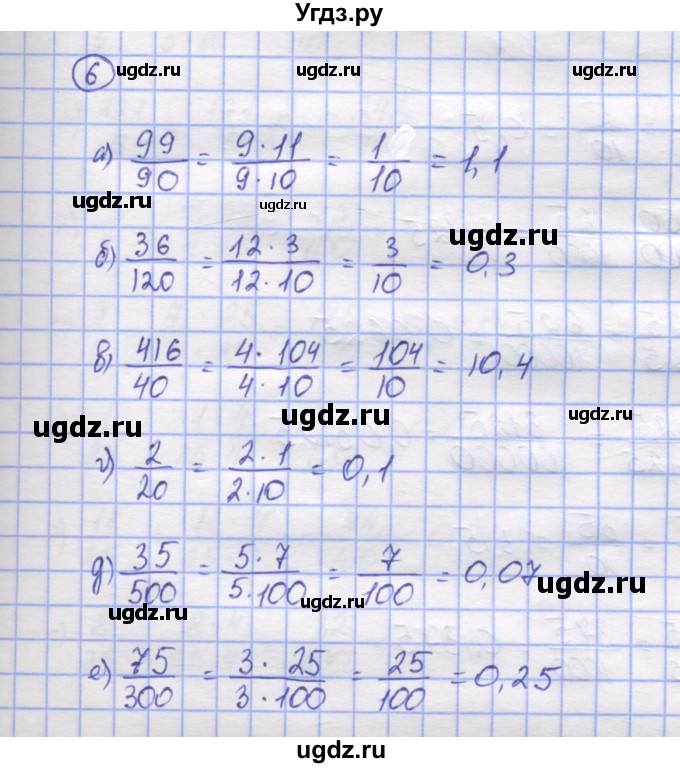 Угдз.ру
6 ugdz.ru ugdz.ru ugdz.ru
а) 99/90 = 9·11/9·10 = 1/10 = 1,1
ugdz.ru ugdz.ru ugdz.ru
б) 36/120 = 12·3/12·10 = 3/10 = 0,3
ugdz.ru
в) 416/40 = 4·104/4·10 = 104/10 = 10,4
ugdz.ru ugdz.ru ugdz.ru
г) 2/20 = 2·1/2·10 = 0,1
д) 35/500 = 5·7/5·100 = 7/100 = 0,07
ugdz.ru ugdz.ru ugdz.ru
е) 75/300 = 3·25/3·100 = 25/100 = 0,25
ugdz.ru